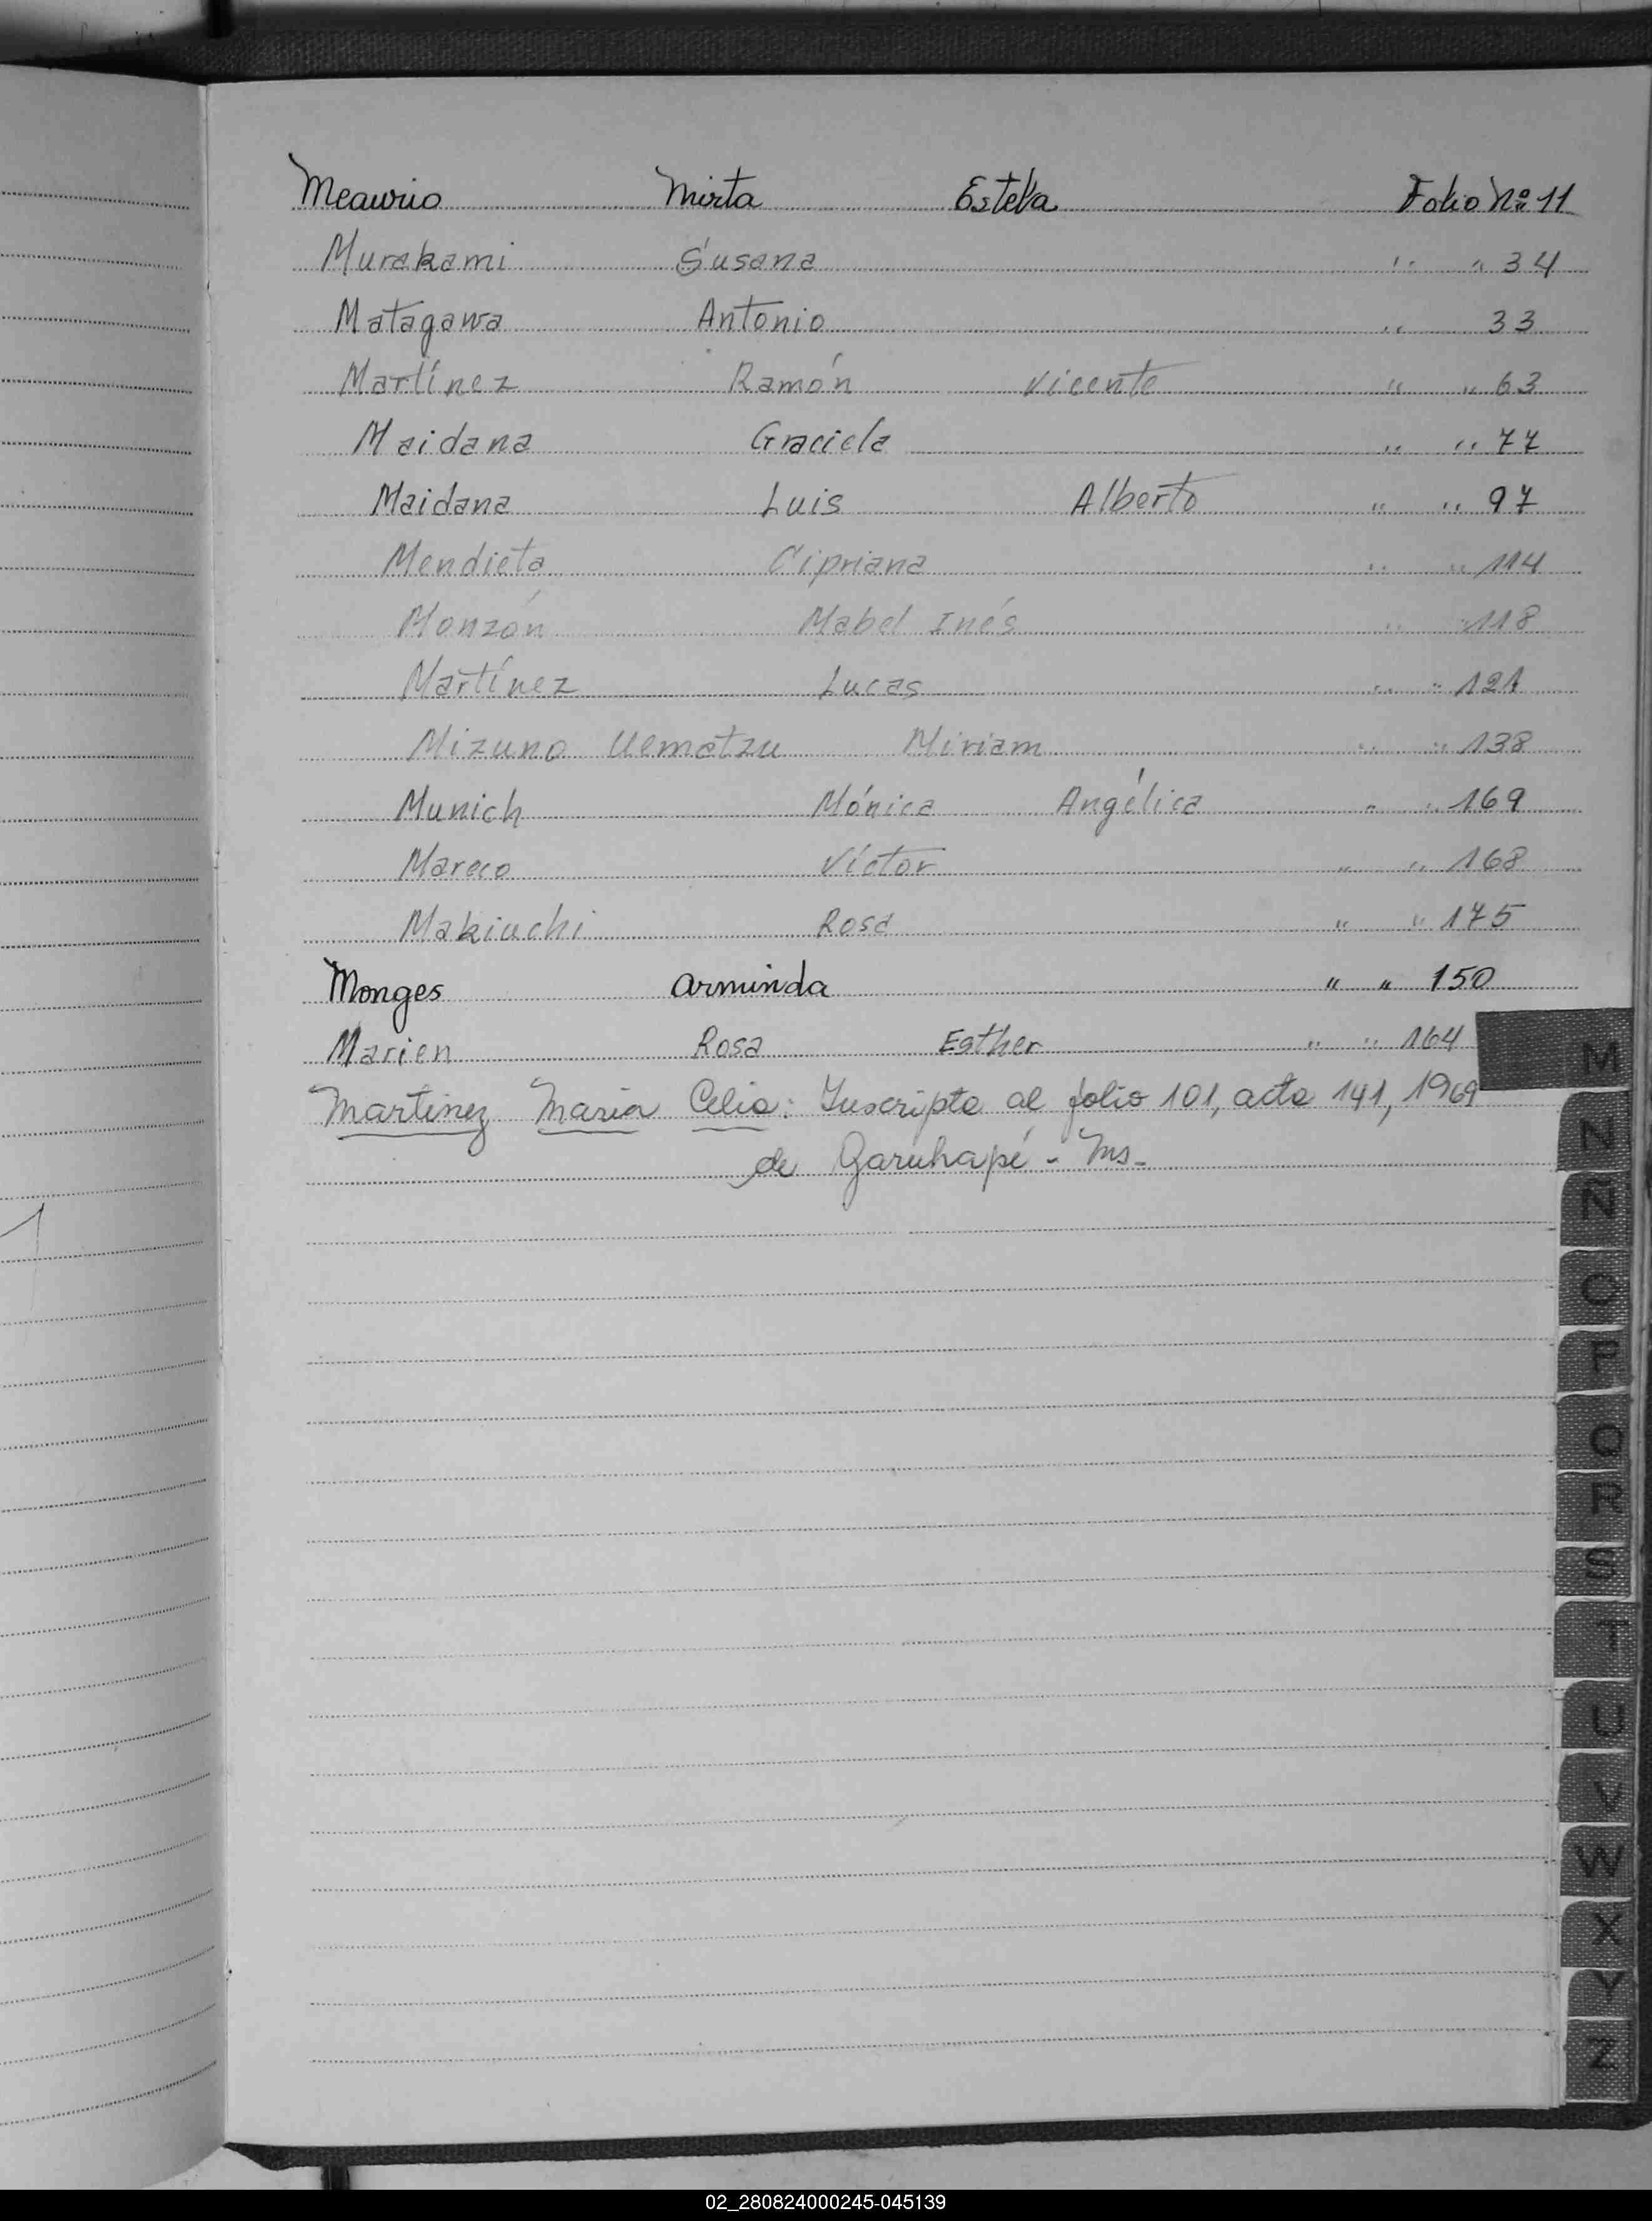 Meaurio Mirta Estela Folio Nº 11
Murakami Susana " " 34
Matagawa Antonio " 33
Martínez Ramón Vicente " " 63
Maidana Graciela " " 77
Maidana Luis Alberto " " 97
Mendieta Cipriana " " 114
Monzón Mabel Inés " " 118
Martínez Lucas " " 121
Mizuno Uematzu Miriam " " 138
Munich Mónica Angélica " " 169
Mareco Víctor " " 168
Makiuchi Rosa " " 175
Monges Arminda " " 150
Marien Rosa Esther " " 164
Martinez Maria Celia: Inscripta al folio 101, acta 141, 1969
de Garuhapé - Ms-
M
N
Ñ
O
P
Q
R
S
T
U
V
W
X
Y
Z
02_280824000245-045139